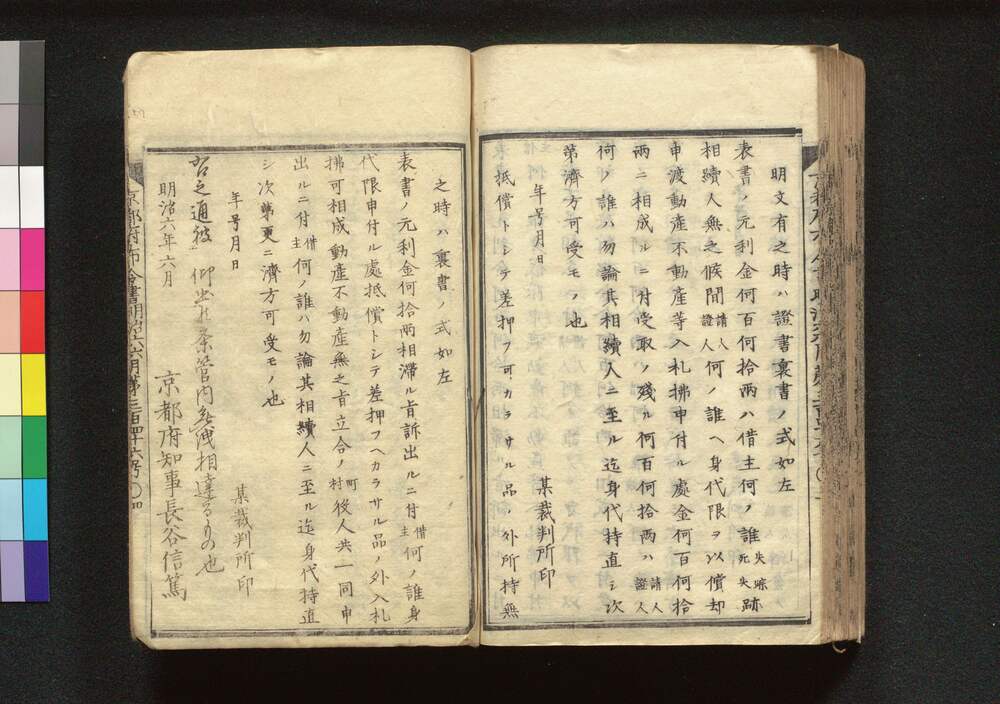 明文有之時ハ證書裏書ノ式如左
表書ノ元利金何百何拾両ハ借主何ノ誰失踪死失跡
相続人無之候間請人證人何ノ誰ヘ身代限ヲ以償却
申渡動産不動産等入札拂申付ル處金何百何拾
両ニ相成ルニ付受取ノ残ル何百何拾両ハ請人證人
何ノ誰ハ勿論其相續人ニ至ル迄身代持直シ次
第濟方可受モノ也
年号月日
某裁判所印
抵償トシテ差押フ可カラサル品ノ外所持無
之時ハ裏書ノ式如左
表書ノ元利金何拾両相滞ル旨訴出ルニ付借主何ノ誰身
代限申付ル處抵償トシテ差押フヘカラサル品ノ外入札
拂可相成動産不動産無之旨立合ノ町村役人共一同申
出ルニ付借主何ノ誰ハ勿論其相續人ニ至ル迄身代持直
シ次第更ニ濟方可受モノ也
年号月日
某裁判所印
右之通被 仰出候条管内無洩相達るもの也
明治六年六月
京都府知事長谷信篤
京都府布令書明治六六月第三百四十六号〇四